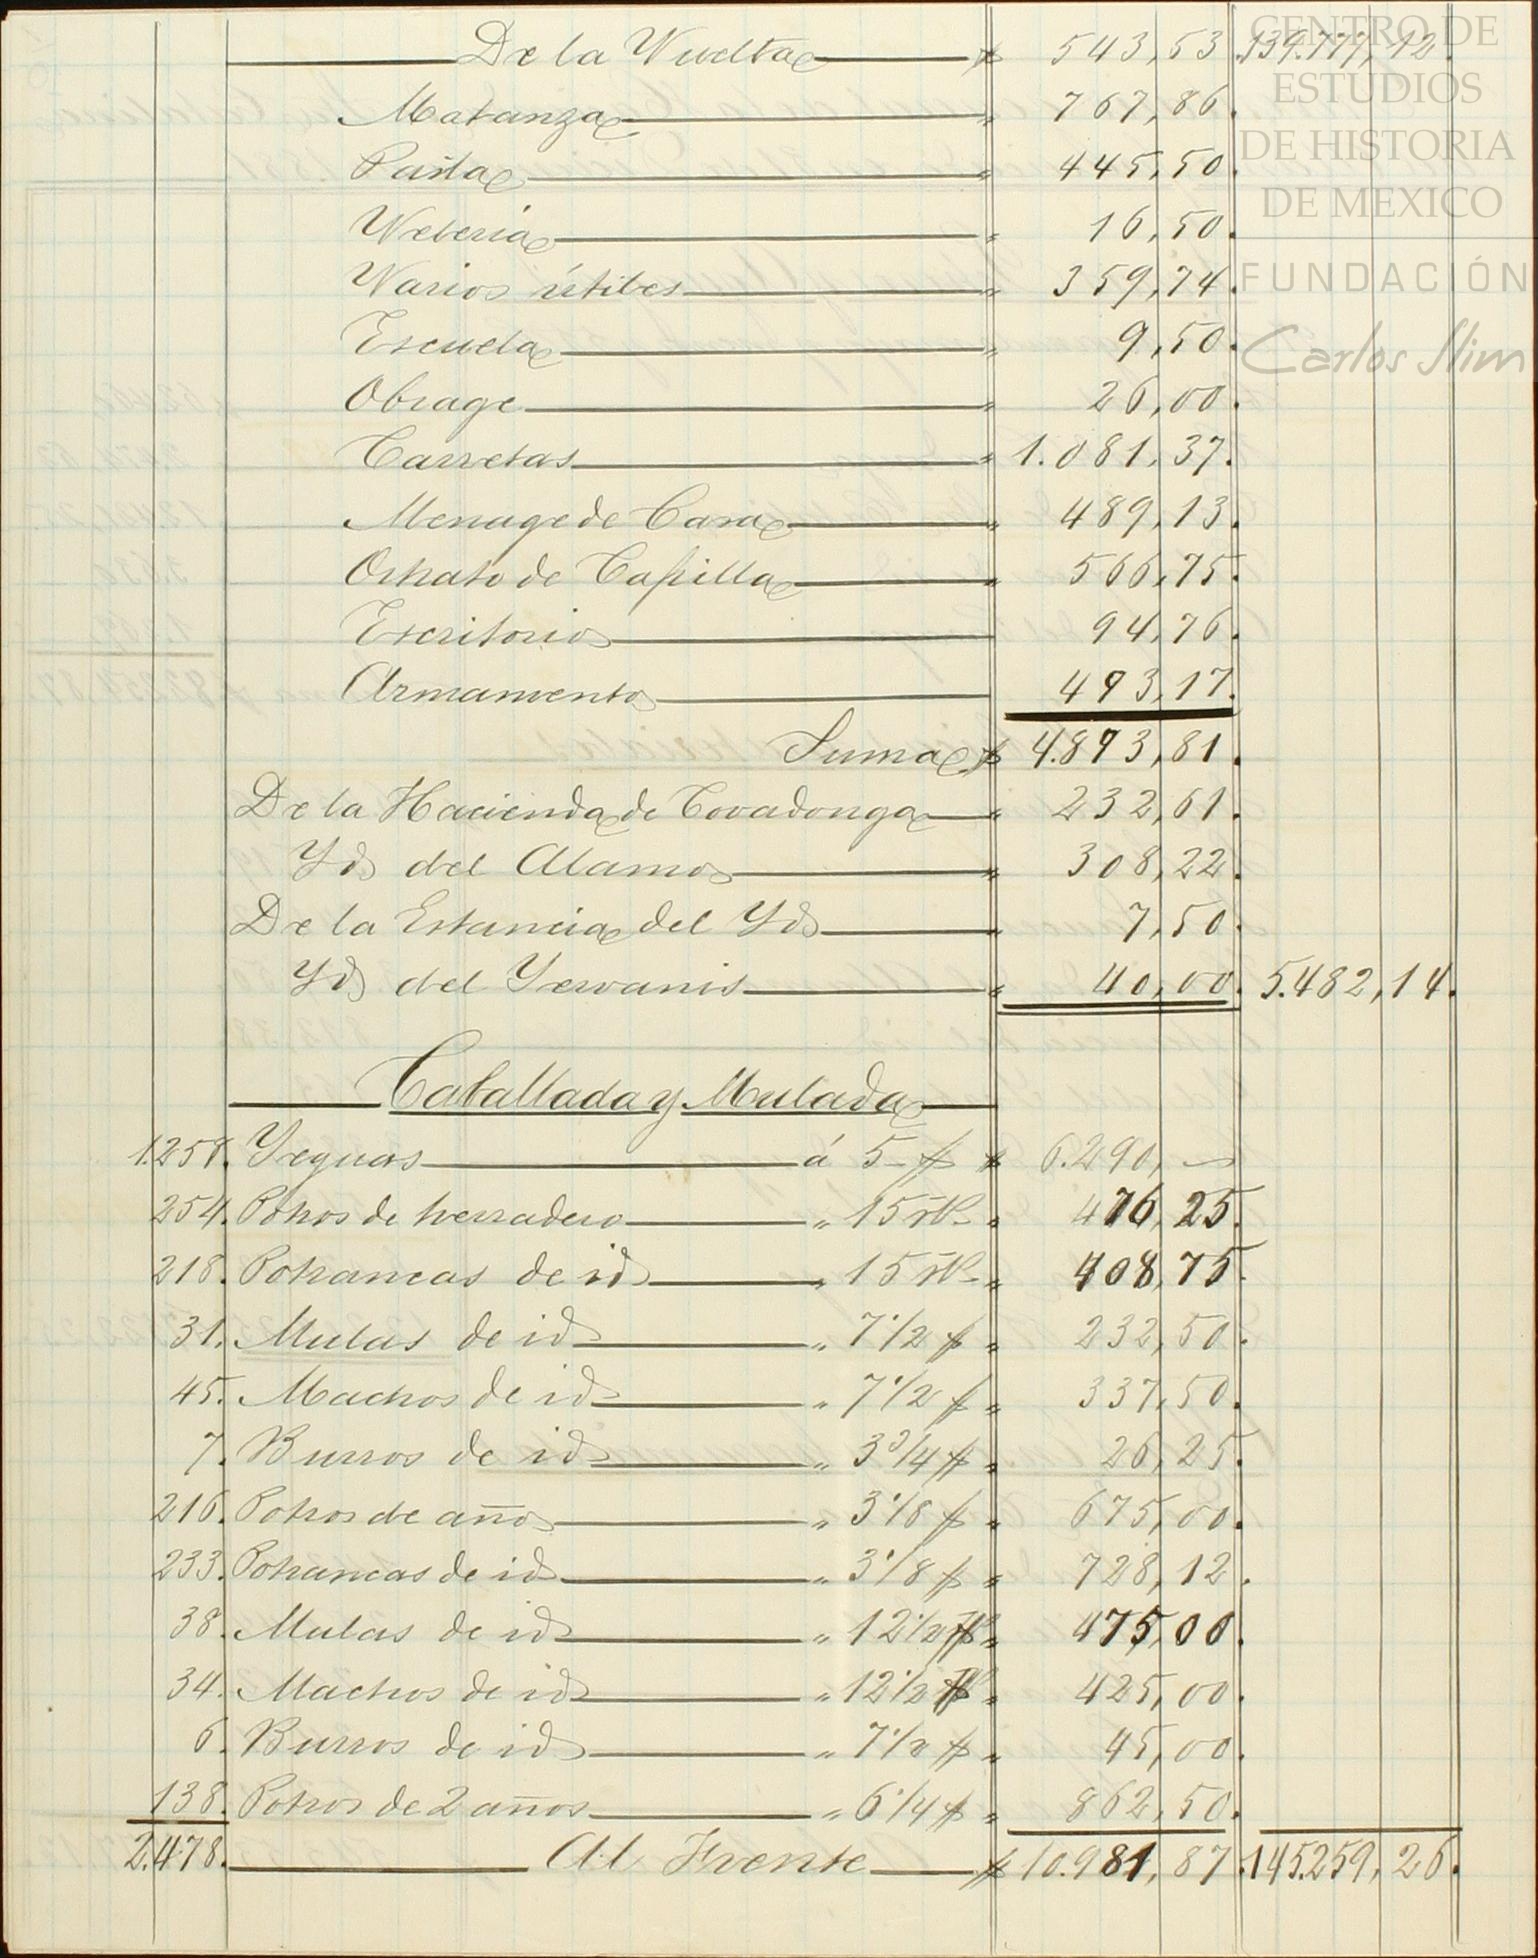 De la Vuelta $ 543,53. 139.777,12.
Matanza " 767,86.
Pasta " 445,50.
Veteria " 16,50.
Varios útiles " 359,74.
Escuela " 9,50.
Obrage " 26,00.
Carretas " 1.081,37.
Menage de Casa " 489,13.
Ornato de Capilla " 566,75.
Escritorio 94,76.
Armamento 493,17.
Suma $ 4.893,81.
De la Hacienda de Covadonga " 232,61.
Yd del Alamo " 308,22.
De la Estancia del Yd " 7,50.
Yd del Yervanis " 40,00. 5.482,14.
Caballada y Mulada
1.258. Yeguas á 5 $ $ 6.290, —
254. Potros de herradero " 15 rls " 476,25.
218. Potrancas de id " 15 rls " 408,75.
31. Mulas de id " 7 1/2 $ " 232,50.
45. Machos de id " 7 1/2 $ " 337,50.
7. Burros de id " 3 3/4 $ " 26,25.
216. Potros de año " 3 1/8 $ " 675,00.
233. Potrancas de id " 3 1/8 $ " 728,12.
38. Mulas de id " 12 1/2 $ " 475,00.
34. Machos de id " 12 1/2 $ " 425,00.
6. Burros de id " 7 1/2 $ " 45,00.
138. Potros de 2 años " 6 1/4 $ " 862,50.
2.478. Al Frente $ 10.981,87. 145.259,26.
CENTRO DE
ESTUDIOS
DE HISTORIA
DE MEXICO
FUNDACIÓN
Carlos Slim